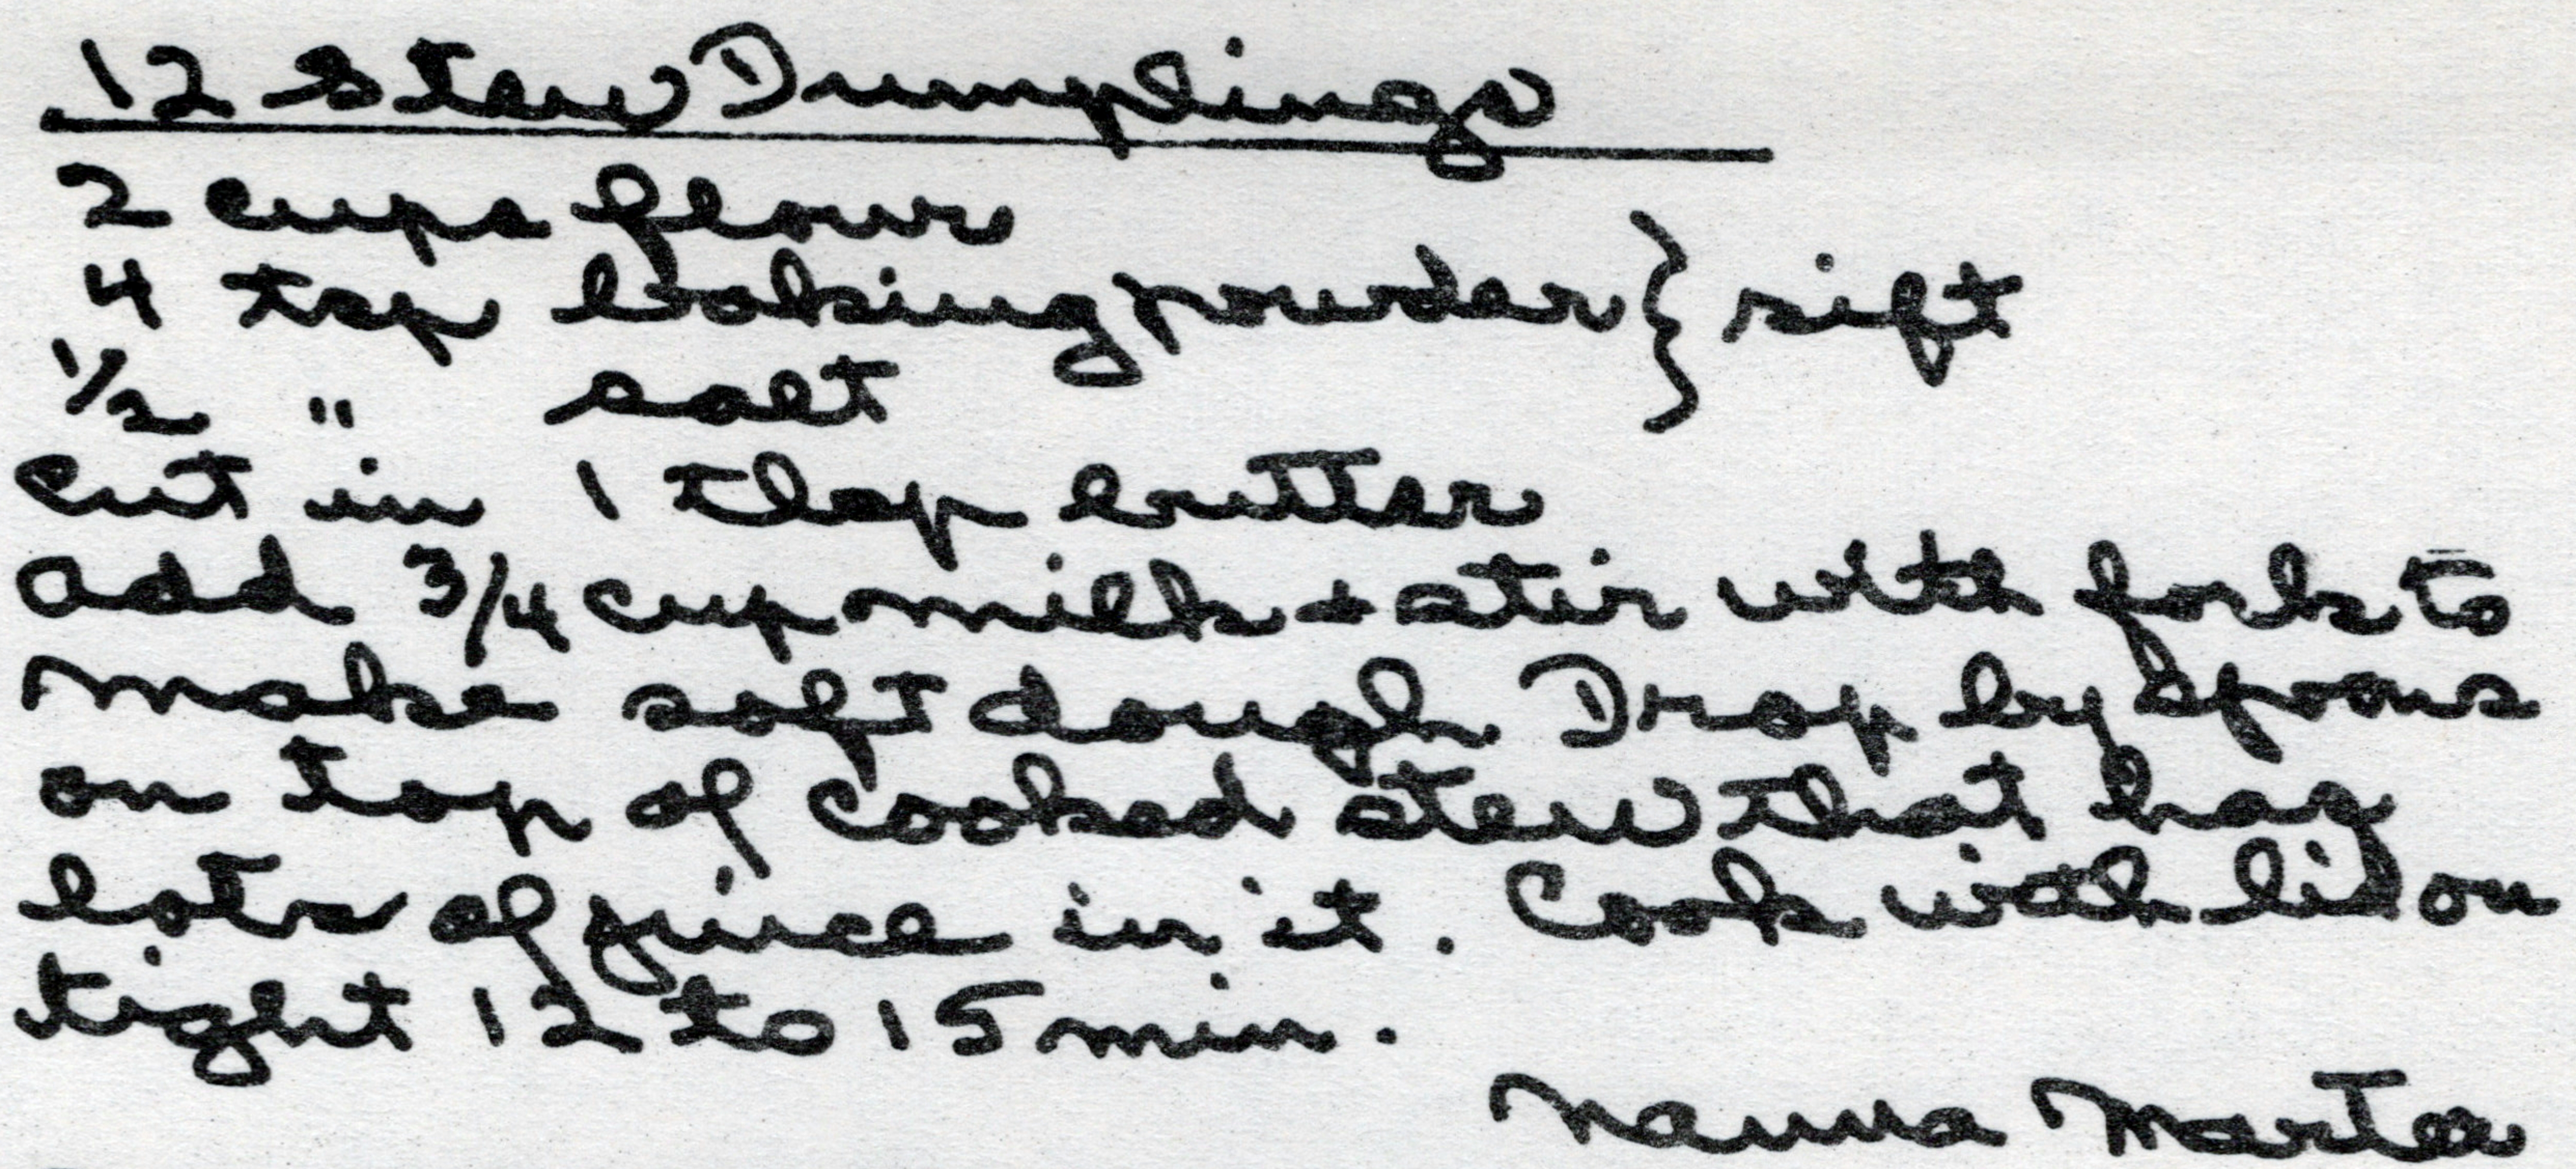 12 Stew Dumplings
2 cups flour
4 tsp baking powder } sift
1/2 " salt
Cut in 1 tbsp butter
add 3/4 cup milk + stir with fork to
make soft dough Drop by spoons
on top of cooked stew that has
lots of juice in it. Cook with lid on
tight 12 to 15 min.
Nanna Martin